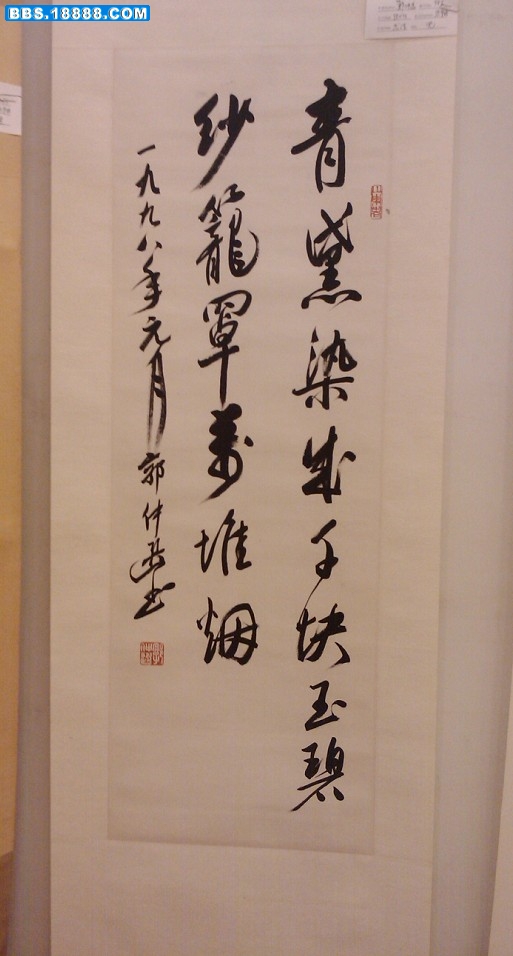 BBS.18888.COM
青黛染成千块玉碧
纱籠罩萬堆烟
一九九八年元月 郭仲选书